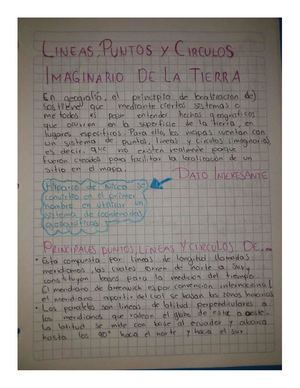 LINEAS, PUNTOS Y CIRCULOS
IMAGINARIO DE LA TIERRA
En geografía, el principio de localización de)
sostiene que mediante ciertos sistemas o
metodos es poder entender hechos geograficos
que ocurren en la superficie de la tierra, en
lugares especificos. Para ello, los mapas cuentan con
un sistema de puntos, lineas y circulos imaginarios,
es decir, que no existen realmente porque
fueron creados para facilitar la localización de un
sitio en el mapa.
DATO INTERESANTE
Hiparco de Nicea se
convirtio en el primer
hombre en utilizar un
sistema de coordenadas
geograficas
PRINCIPALES PUNTOS, LINEAS Y CIRCULOS DE...
• Esta compuesta por lineas de longitud llamadas
meridianos, las cuales van de norte a sur,
constituyen bases para la medicion del tiempo.
El meridiano de Greenwich es por convención internacional
el meridiano apartir del cual se basan las zonas horarias
• Los paralelos son lineas de latitud perpendiculares a
los meridianos que rodean el globo de este a oeste.
La latitud se mide con base al ecuador y abarca
hasta los 90° hacia el norte y hacia el sur.